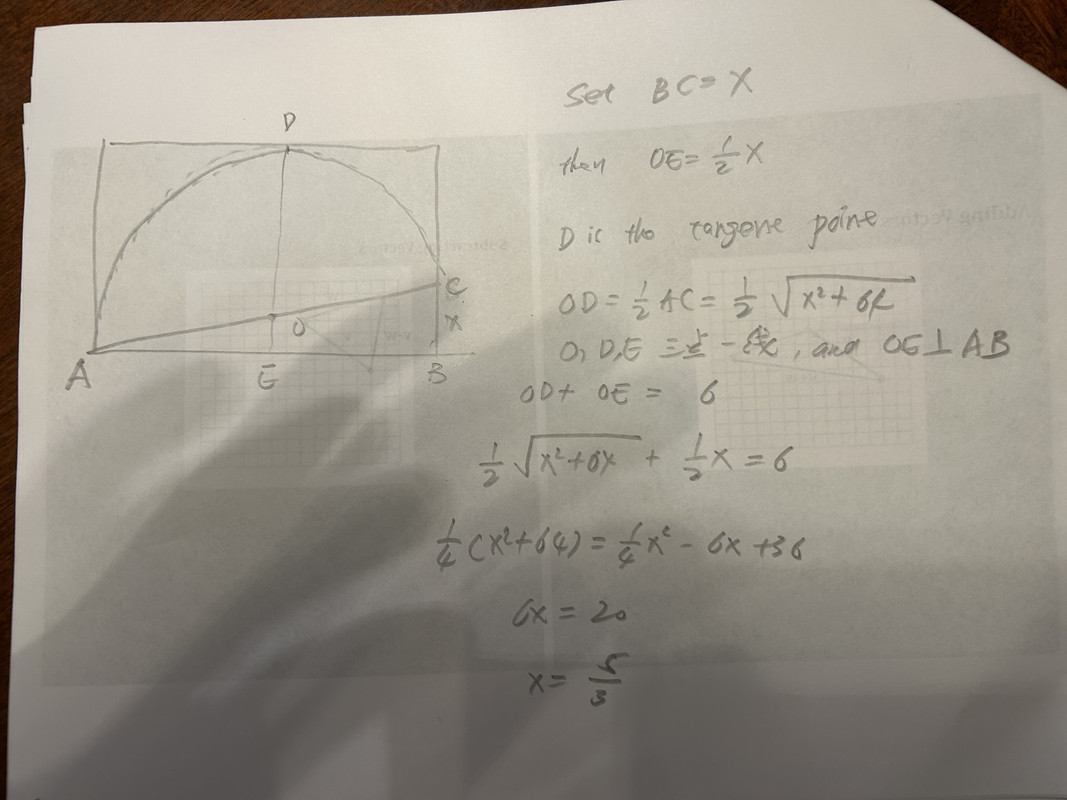 D
A
E
B
O
C
x
Set BC = X
then OE = 1/2 X
D is the tangent point
OD = 1/2 AC = 1/2 √(x² + 64)
O, D, E 三点一线, and OE ⊥ AB
OD + OE = 6
1/2 √(x² + 6x) + 1/2 x = 6
1/4 (x² + 64) = 1/4 x² - 6x + 36
6x = 20
x = 5/3